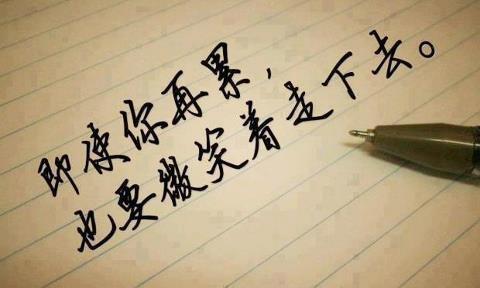 即使你再累，
也要微笑着走下去。